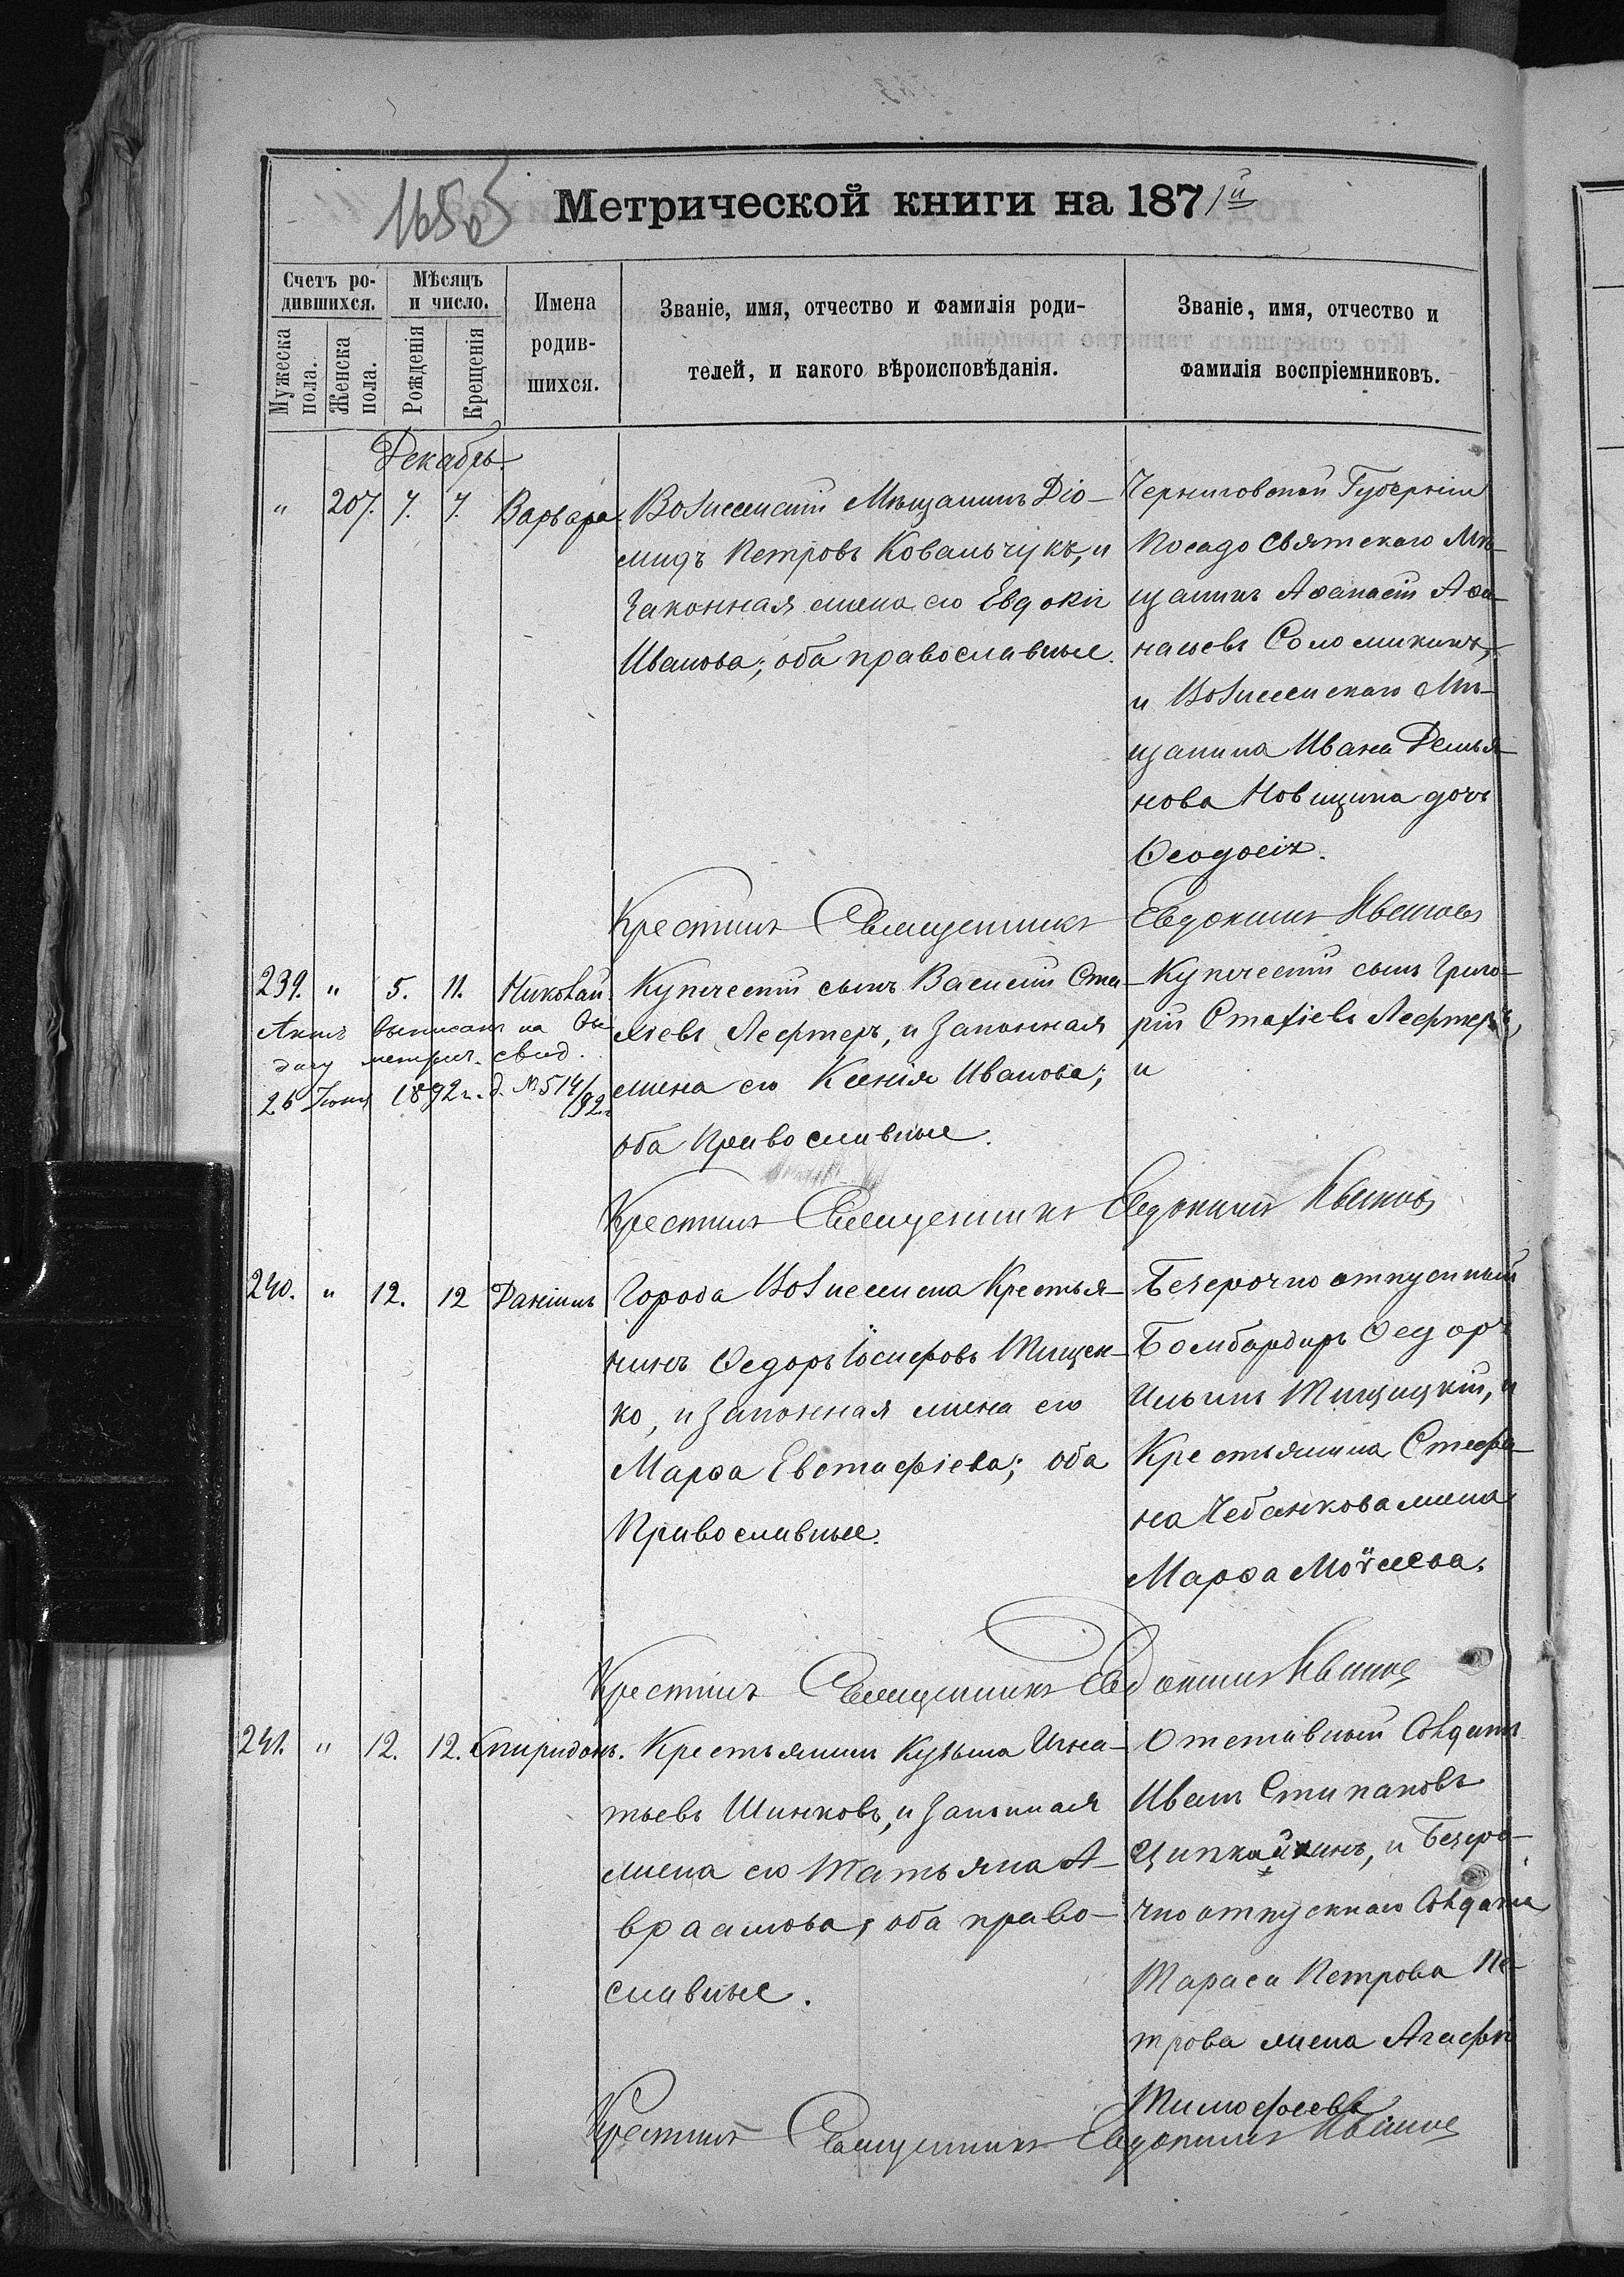 165 об
Метрической книги на 1871й
Счетъ ро-
дившихся.
Мужеска
пола.
Женска
пола.
Мѣсяцъ
и число.
Рожденія
Крещенія
Имена
родив-
шихся.
Званіе, имя, отчество и фамилія роди-
телей, и какого вѣроисповѣданія.
Званіе, имя, отчество и
фамилія воспріемниковъ.
Декабрь.
" 207. 7. 7. Варвара.
Вознесенскій Мѣщанинъ Діо-
мидъ Петровъ Ковальчукъ, и
законная жена его Евдокія
Иванова; оба православные.
Черниговской Губерніи
Посада Святскаго Мѣ-
щанинъ Аѳанасій Аѳа-
насьевъ Соломикинъ,
и Вознесенскаго Мѣ-
щанина Ивана Демья-
нова Новицина дочь
Ѳеодосія.
Крестилъ Священникъ Евдокимъ Ивановъ
239. " 5. 11. Николай.
Актъ выписанъ на вы-
дачу метрич. свид.
26 Іюня 1892 г. д. № 514/92 г.
Купеческій сынъ Василій Ста-
хіевъ Лефтеръ, и законная
жена его Ксенія Иванова;
оба Православные.
Купеческій сынъ Григо-
рій Стахіевъ Лефтеръ,
и
Крестилъ Священникъ Евдокимъ Ивановъ
240. " 12. 12 Даніилъ
Города Вознесенска Крестья-
нинъ Ѳедоръ Іосифовъ Тищен-
ко, и законная жена его
Марѳа Евстафіева; оба
Православные.
Безсрочно отпускный
Бомбардиръ Ѳедоръ
Ильинъ Тищицкій, и
Крестьянина Стефа-
на Чебанкова жена
Марѳа Моѵсеева.
Крестилъ Священникъ Евдокимъ Ивановъ
241. " 12. 12. Спиридонъ.
Крестьянинъ Кузьма Игна-
тьевъ Шинковъ, и законная
жена его Татьяна А-
враамова; оба право-
славные.
Отставный Солдатъ
Иванъ Стипановъ
и Безсро-
чно отпускнаго Солдата
Тараса Петрова Пе-
трова жена Агафія
Тимофеева
Крестилъ Священникъ Евдокимъ Ивановъ